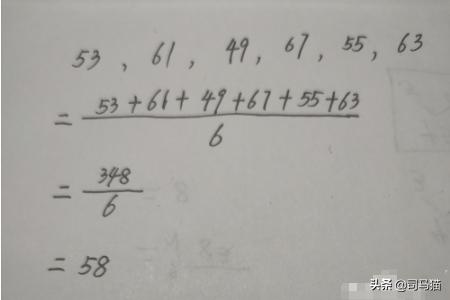 53 , 61 , 49 , 67 , 55 , 63
= 53+61+49+67+55+63
6
= 348
6
= 58
头条 @司马猫